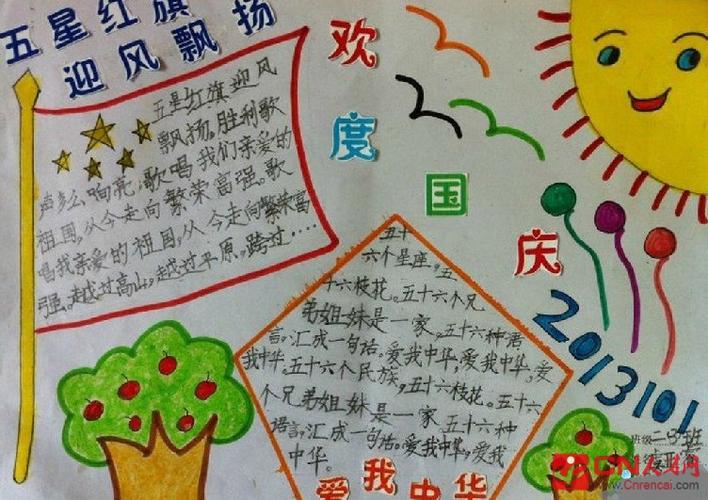 五星红旗
迎风飘扬
欢度国庆
五星红旗迎风
飘扬。胜利歌
声多么响亮,歌唱我们亲爱的
祖国,从今走向繁荣富强。歌
唱我亲爱的祖国,从今走向繁荣富
强。越过高山,越过平原,跨过……
五十
六个星座,五
十六枝花。五十六个兄
弟姐妹是一家。五十六种语
言,汇成一句话。爱我中华,爱我中华,爱
我中华。五十六个民族,五十六枝花。五十六
个兄弟姐妹是一家 五十六种
语言,汇成一句话。爱我中华,爱我
中华。
爱我中华
2013101
班级
班
CN人才网
www.Cnrencai.com